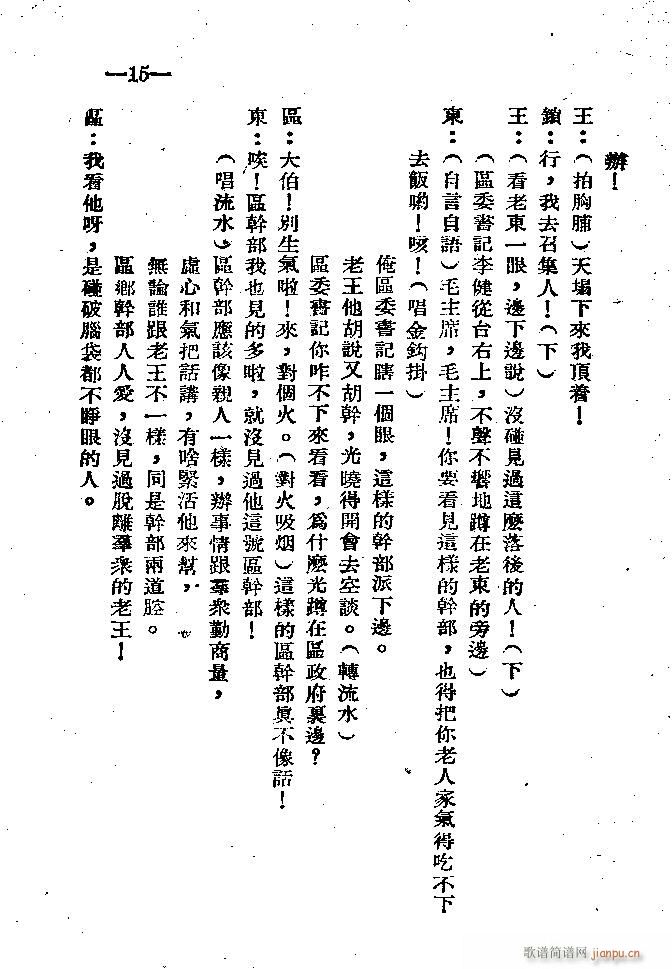 —15—
辦！
王：（拍胸脯）天塌下來我頂着！
鎖：行，我去召集人！（下）
王：（看老東一眼，邊下邊說）沒碰見過這麼落後的人！（下）
（區委書記李健從台右上，不聲不響地蹲在老東的旁邊）
東：（自言自語）毛主席，毛主席！你要看見這樣的幹部，也得把你老人家氣得吃不下
去飯喲！咳！（唱金鈎掛）
俺區委書記瞎一個眼，這樣的幹部派下邊。
老王他胡說又胡幹，光曉得開會去空談。（轉流水）
區委書記你咋不下來看看，爲什麼光蹲在區政府裏邊？
區：大伯！別生氣啦！來，對個火。（對火吸烟）這樣的區幹部眞不像話！
東：唉！區幹部我也見的多啦，就沒見過他這號區幹部！
（唱流水）區幹部應該像親人一樣，辦事情跟羣衆勤商量，
虛心和氣把話講，有啥緊活他來幫，
無論誰跟老王不一樣，同是幹部兩道腔。
區鄉幹部人人愛，沒見過脫離羣衆的老王！
區：我看他呀，是碰破腦袋都不睜眼的人。
歌谱简谱网 jianpu.cn